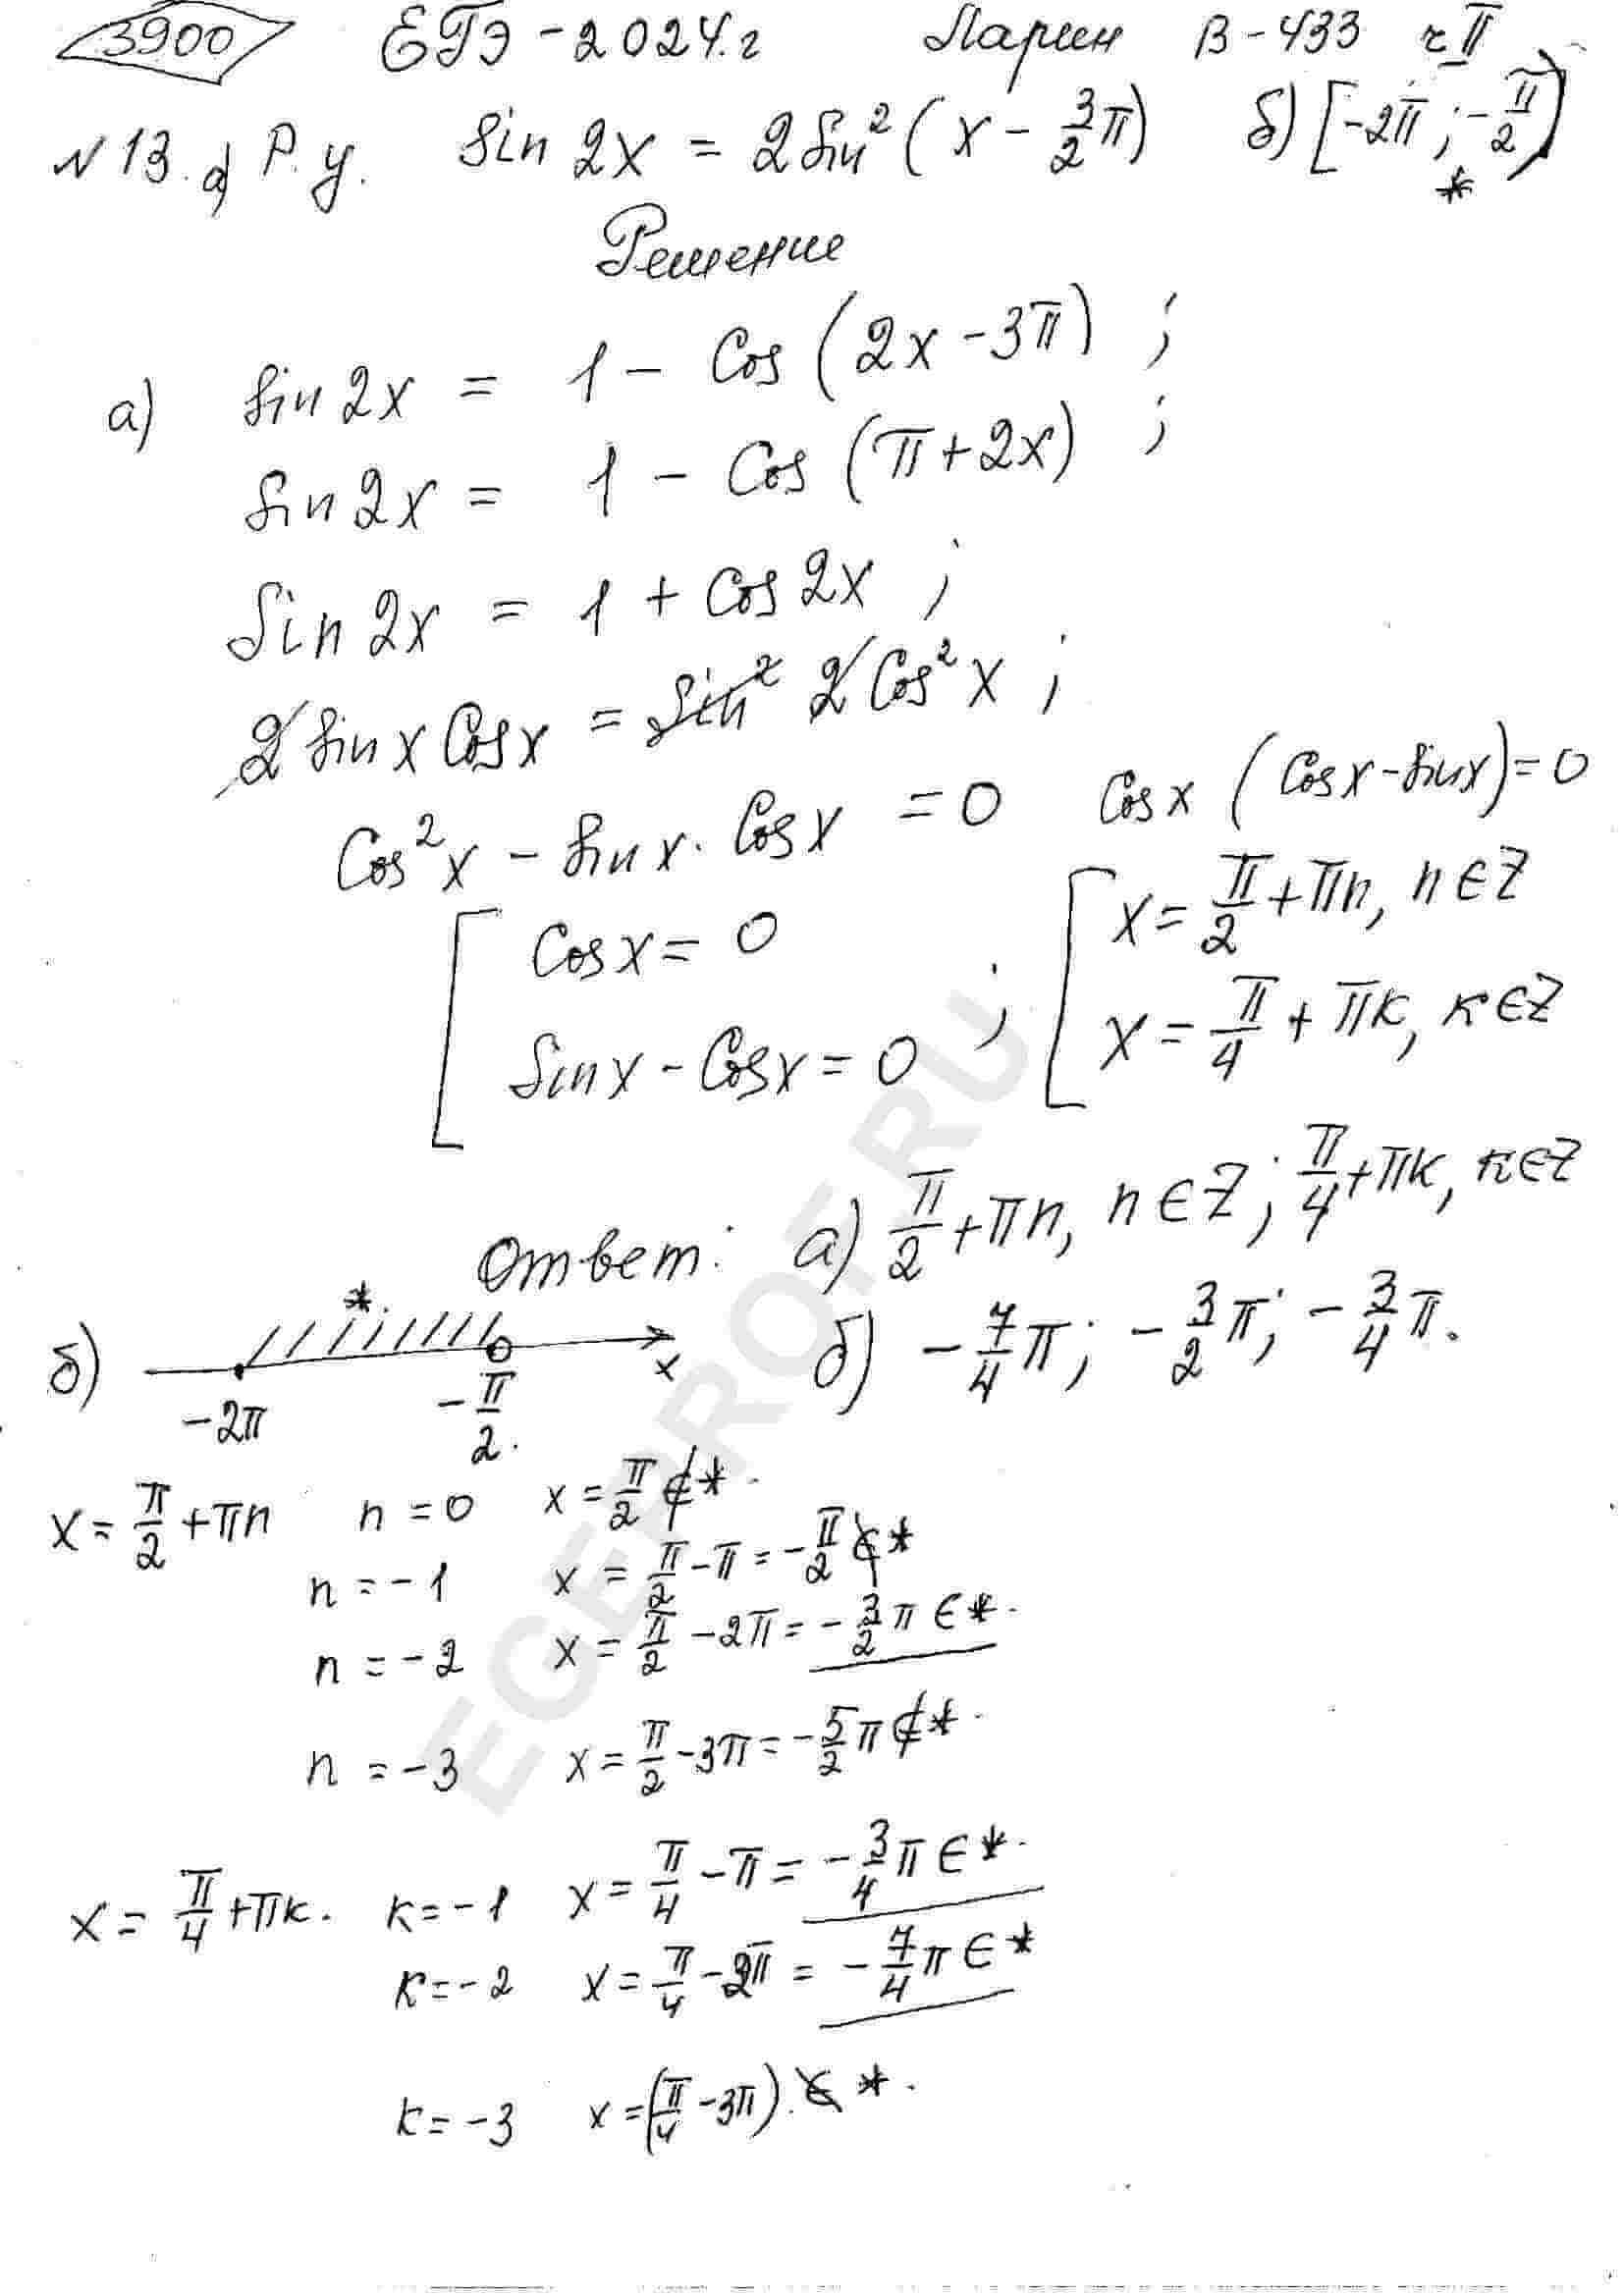 3900 ЕГЭ-2024.г Ларин В-433 ч II
N13. а) Р. у. Sin 2x = 2Sin²(x - 3/2π) б) [-2π; -π/2) *
Решение
а) Sin 2x = 1 - Cos(2x - 3π) ;
Sin 2x = 1 - Cos(π + 2x) ;
Sin 2x = 1 + Cos 2x ;
2 Sin x Cos x = 2 Cos² x ;
Cos² x - Sin x · Cos x = 0 Cos x (Cos x - Sin x) = 0
[ Cos x = 0 ; [ x = π/2 + πn, n ∈ Z
Sin x - Cos x = 0 x = π/4 + πk, k ∈ Z
Ответ: а) π/2 + πn, n ∈ Z; π/4 + πk, k ∈ Z
б) -7/4π; -3/2π; -3/4π.
б) * -2π -π/2 x
x = π/2 + πn n = 0 x = π/2 ∉ *
n = -1 x = π/2 - π = -π/2 ∉ *
n = -2 x = π/2 - 2π = -3/2π ∈ *.
n = -3 x = π/2 - 3π = -5/2π ∉ *.
x = π/4 + πk. k = -1 x = π/4 - π = -3/4π ∈ *.
k = -2 x = π/4 - 2π = -7/4π ∈ *
k = -3 x = (π/4 - 3π). ∉ *.
EGEPROF.RU